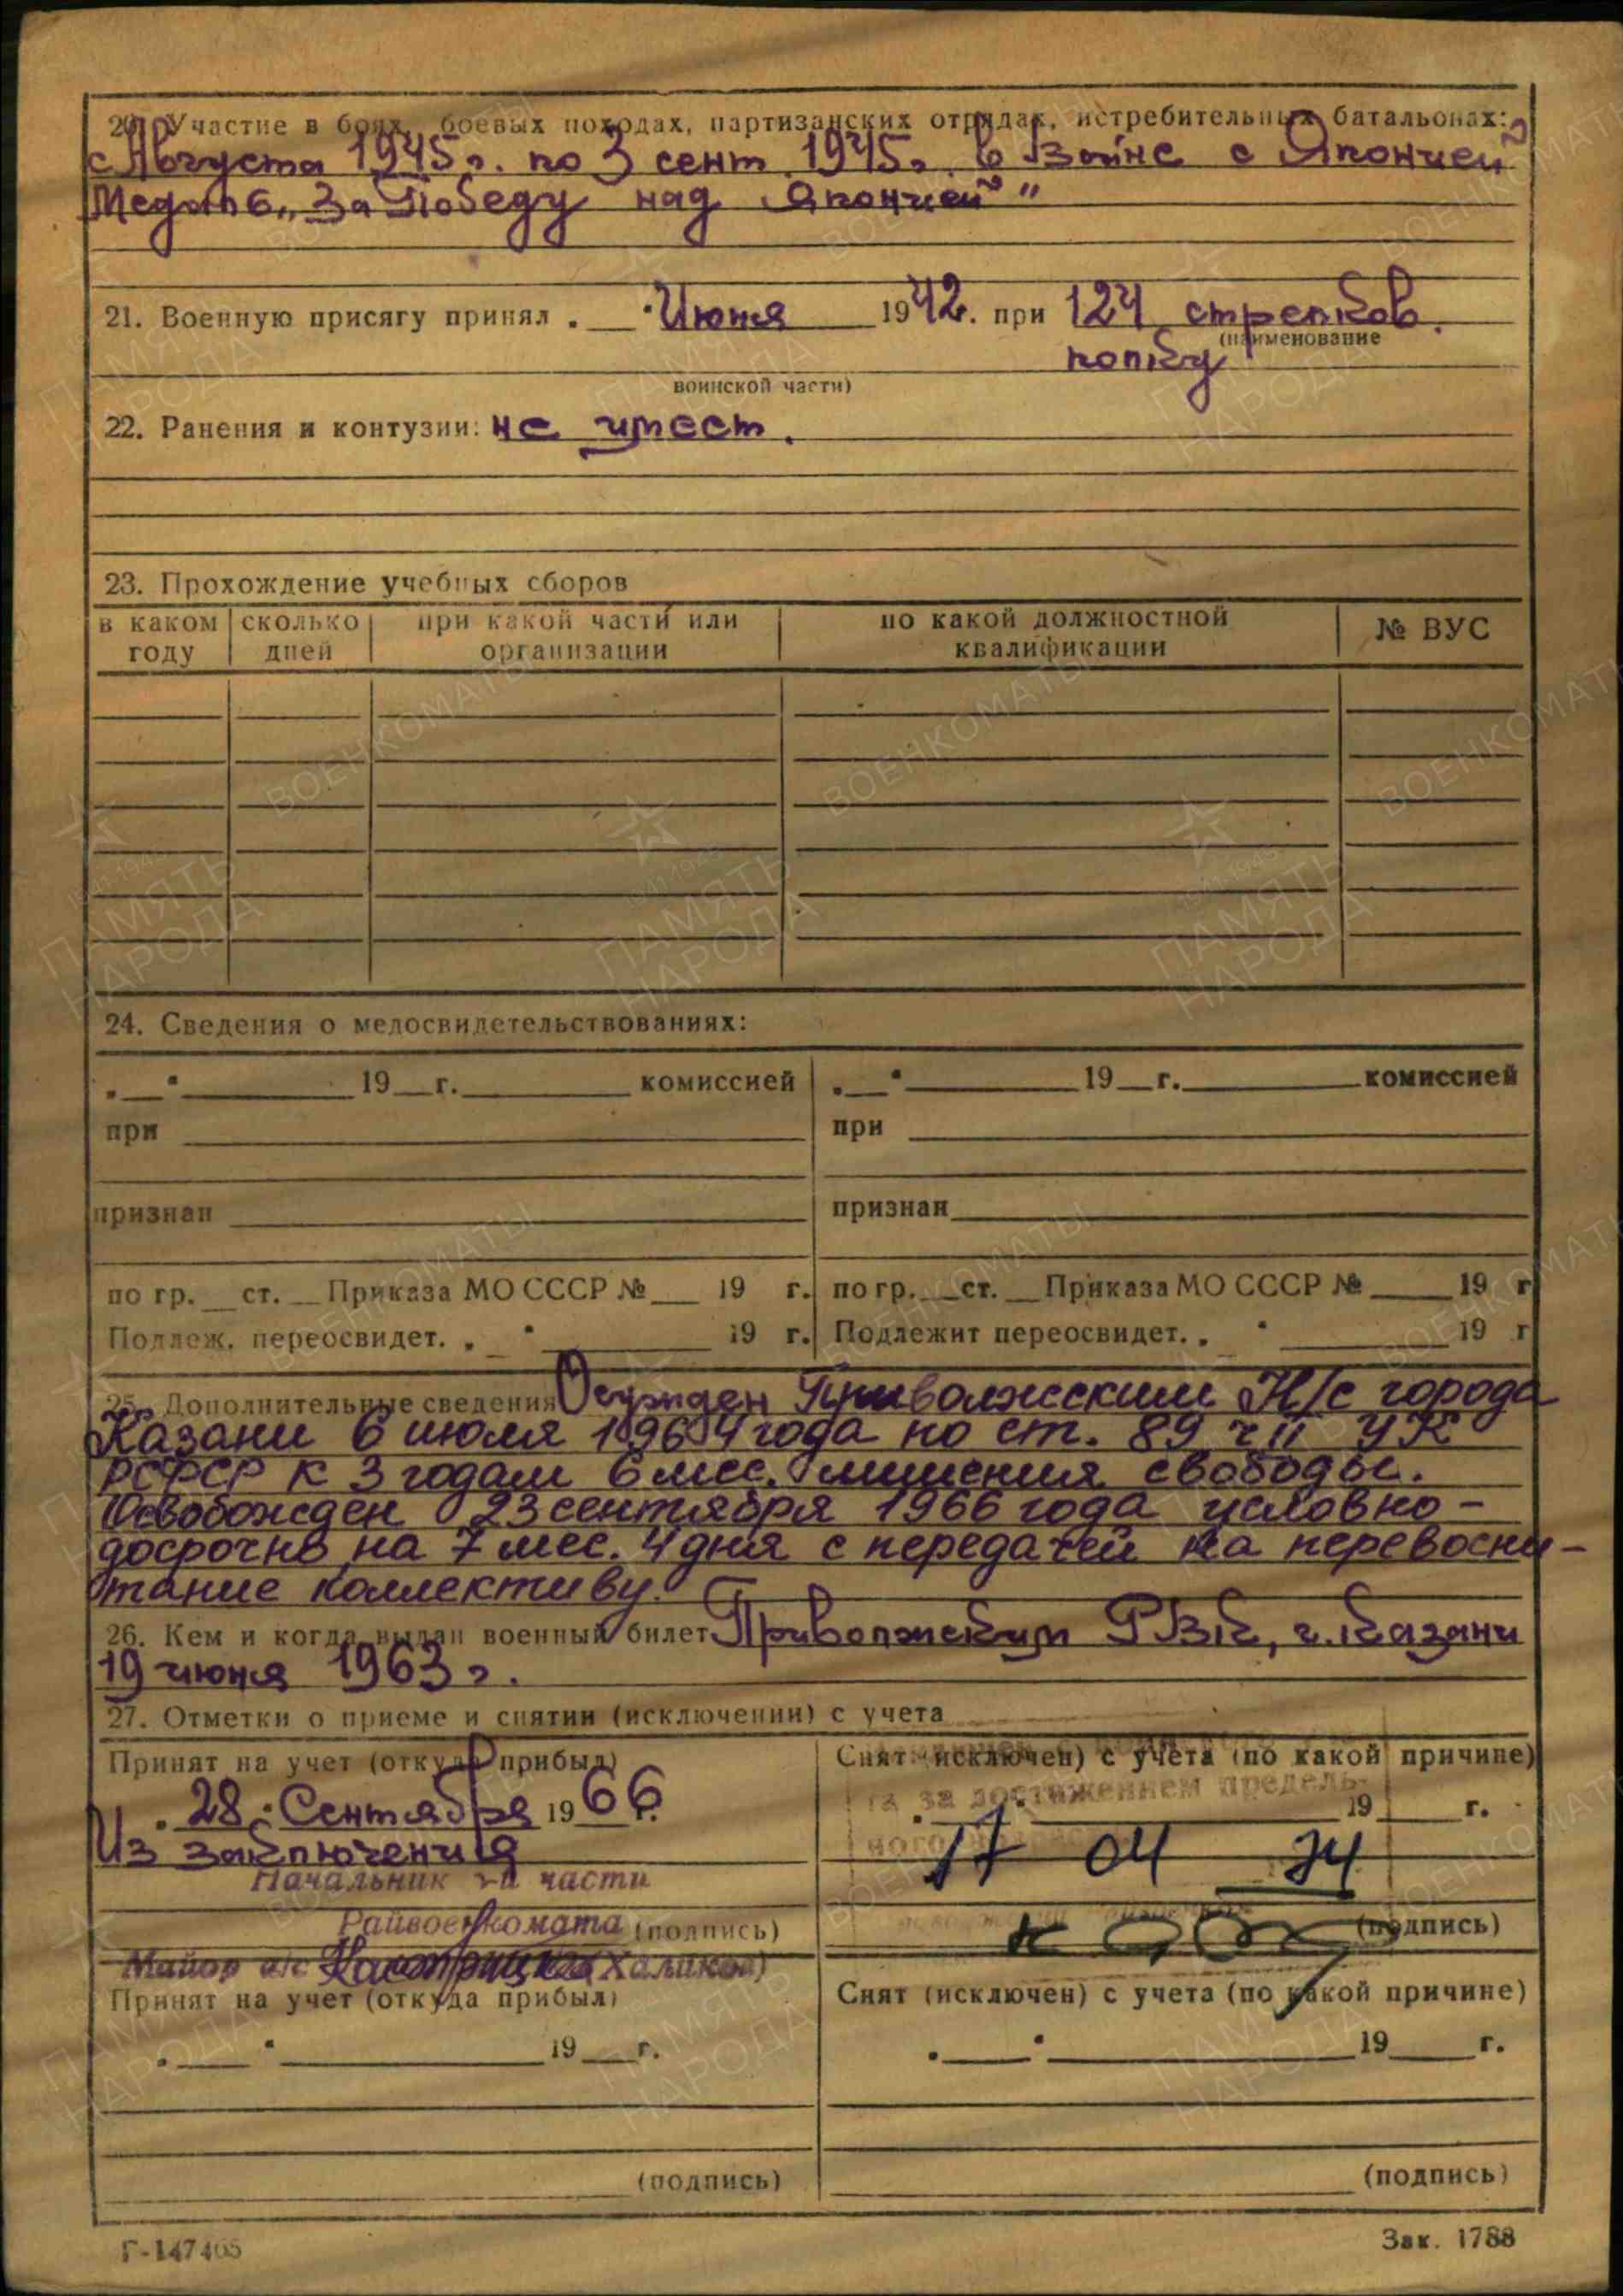 20. Участие в боях, боевых походах, партизанских отрядах, истребительных батальонах:
с Августа 1945 г. по 3 сент. 1945г. в Войне с Японией
Медаль „За Победу над Японией"
21. Военную присягу принял . Июня 1942. при 124 стрелков.
(наименование
полку
воинской части)
22. Ранения и контузии: не имеет.
23. Прохождение учебных сборов
в каком году | сколько дней | при какой части или организации | по какой должностной квалификации | № ВУС
24. Сведения о медосвидетельствованиях:
19 г. комиссией 19 г. комиссией
при при
признан признан
по гр. ст. Приказа МО СССР № 19 г. по гр. ст. Приказа МО СССР № 19 г
Подлеж. переосвидет. 19 г. Подлежит переосвидет. 19 г
25. Дополнительные сведения Осужден Приволжским Н/с города
Казани 6 июля 1964 года по ст. 89 ч II УК
РСФСР к 3 годам 6 мес. лишения свободы.
Освобожден 23 сентября 1966 года условно-
досрочно на 7 мес. 4 дня с передачей на перевоспи-
тание коллективу.
26. Кем и когда выдан военный билет Приволжским РВК, г. Казани
19 июня 1963 г.
27. Отметки о приеме и снятии (исключении) с учета
Принят на учет (откуда прибыл) Снят (исключен) с учета (по какой причине)
та за достижением предель-
28 Сентября 1966 г. 19 г.
ного
Из заключения 17 04 74
Начальник части
Райвоенкомата (подпись) (подпись)
Майор (Халиков)
Принят на учет (откуда прибыл) Снят (исключен) с учета (по какой причине)
19 г. 19 г.
(подпись) (подпись)
Г-147465 Зак. 1788
ПАМЯТЬ НАРОДА
ВОЕНКОМАТЫ